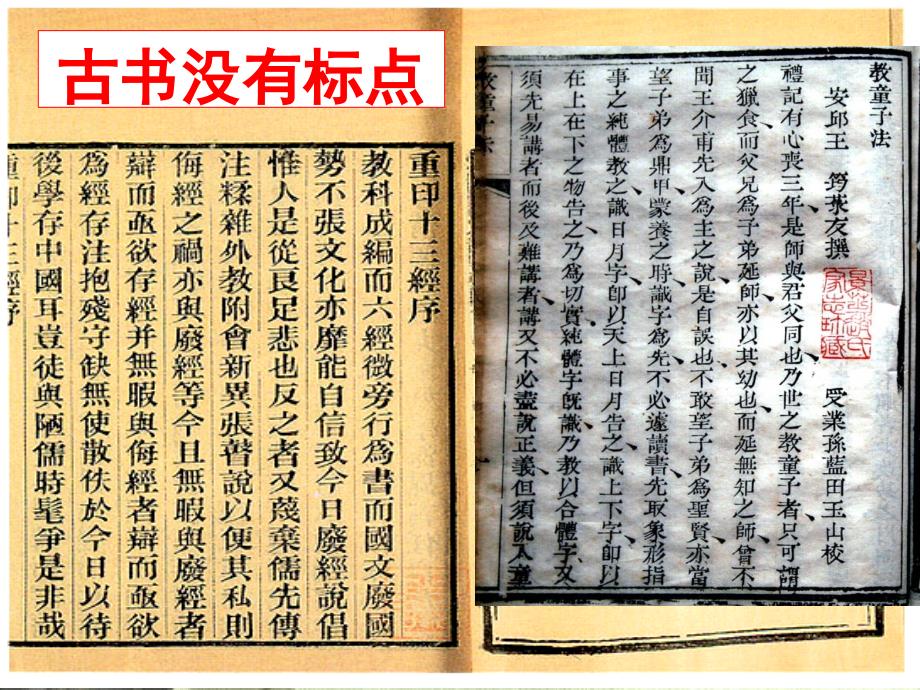 古书没有标点
重印十三經序
教科成編而六經微旁行爲書而國文廢國
勢不張文化亦靡能自信致今日廢經說倡
惟人是從良足悲也反之者又蔑棄儒先傳
注糅雜外教附會新異張瞽說以便其私則
侮經之禍亦與廢經等今且無暇與廢經者
辯而亟欲存經并無暇與侮經者辯而亟欲
爲經存注抱殘守缺無使散佚於今日以待
後學存中國耳豈徒與陋儒時髦爭是非哉
重印十三經序
教童子法
安邱王 筠菉友撰 受業孫藍田玉山校
禮記有心喪三年是師與君父同也乃世之教童子者只可謂
之獵食而父兄爲子弟延師亦以其幼也而延無知之師曾不
聞王介甫先入爲主之說是自誤也不敢望子弟爲聖賢亦當
望子弟爲鼎甲蒙養之時識字爲先不必遽讀書先取象形指
事之純體教之識日月字卽以天上日月告之識上下字卽以
在上在下之物告之乃爲切實純體字旣識乃教以合體字又
須先易講者而後及難講者講又不必盡說正義但須說入童
教童子法